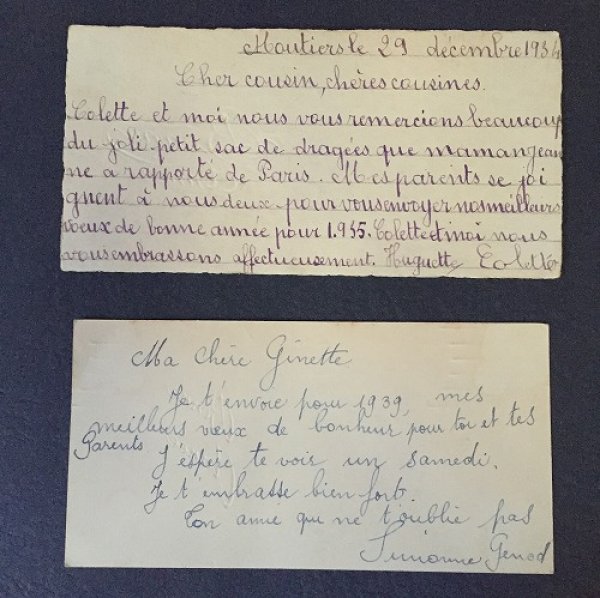 Moutiers le 29 décembre 1934
Cher cousin, chères cousines.
Colette et moi nous vous remercions beaucoup
du joli petit sac de dragées que maman jean
ne a rapporté de Paris. Mes parents se joi
gnent à nous deux pour vous envoyer nos meilleurs
voeux de bonne année pour 1.935. Colette et moi nous
vous embrassons affectueusement. Huguette Colette
Ma chère Ginette
Je t'envoie pour 1939, mes
meilleurs vœux de bonheur pour toi et tes
Parents
J'espère te voir un samedi.
Je t'embrasse bien fort.
Ton amie qui ne t'oublie pas
Simonne Genod